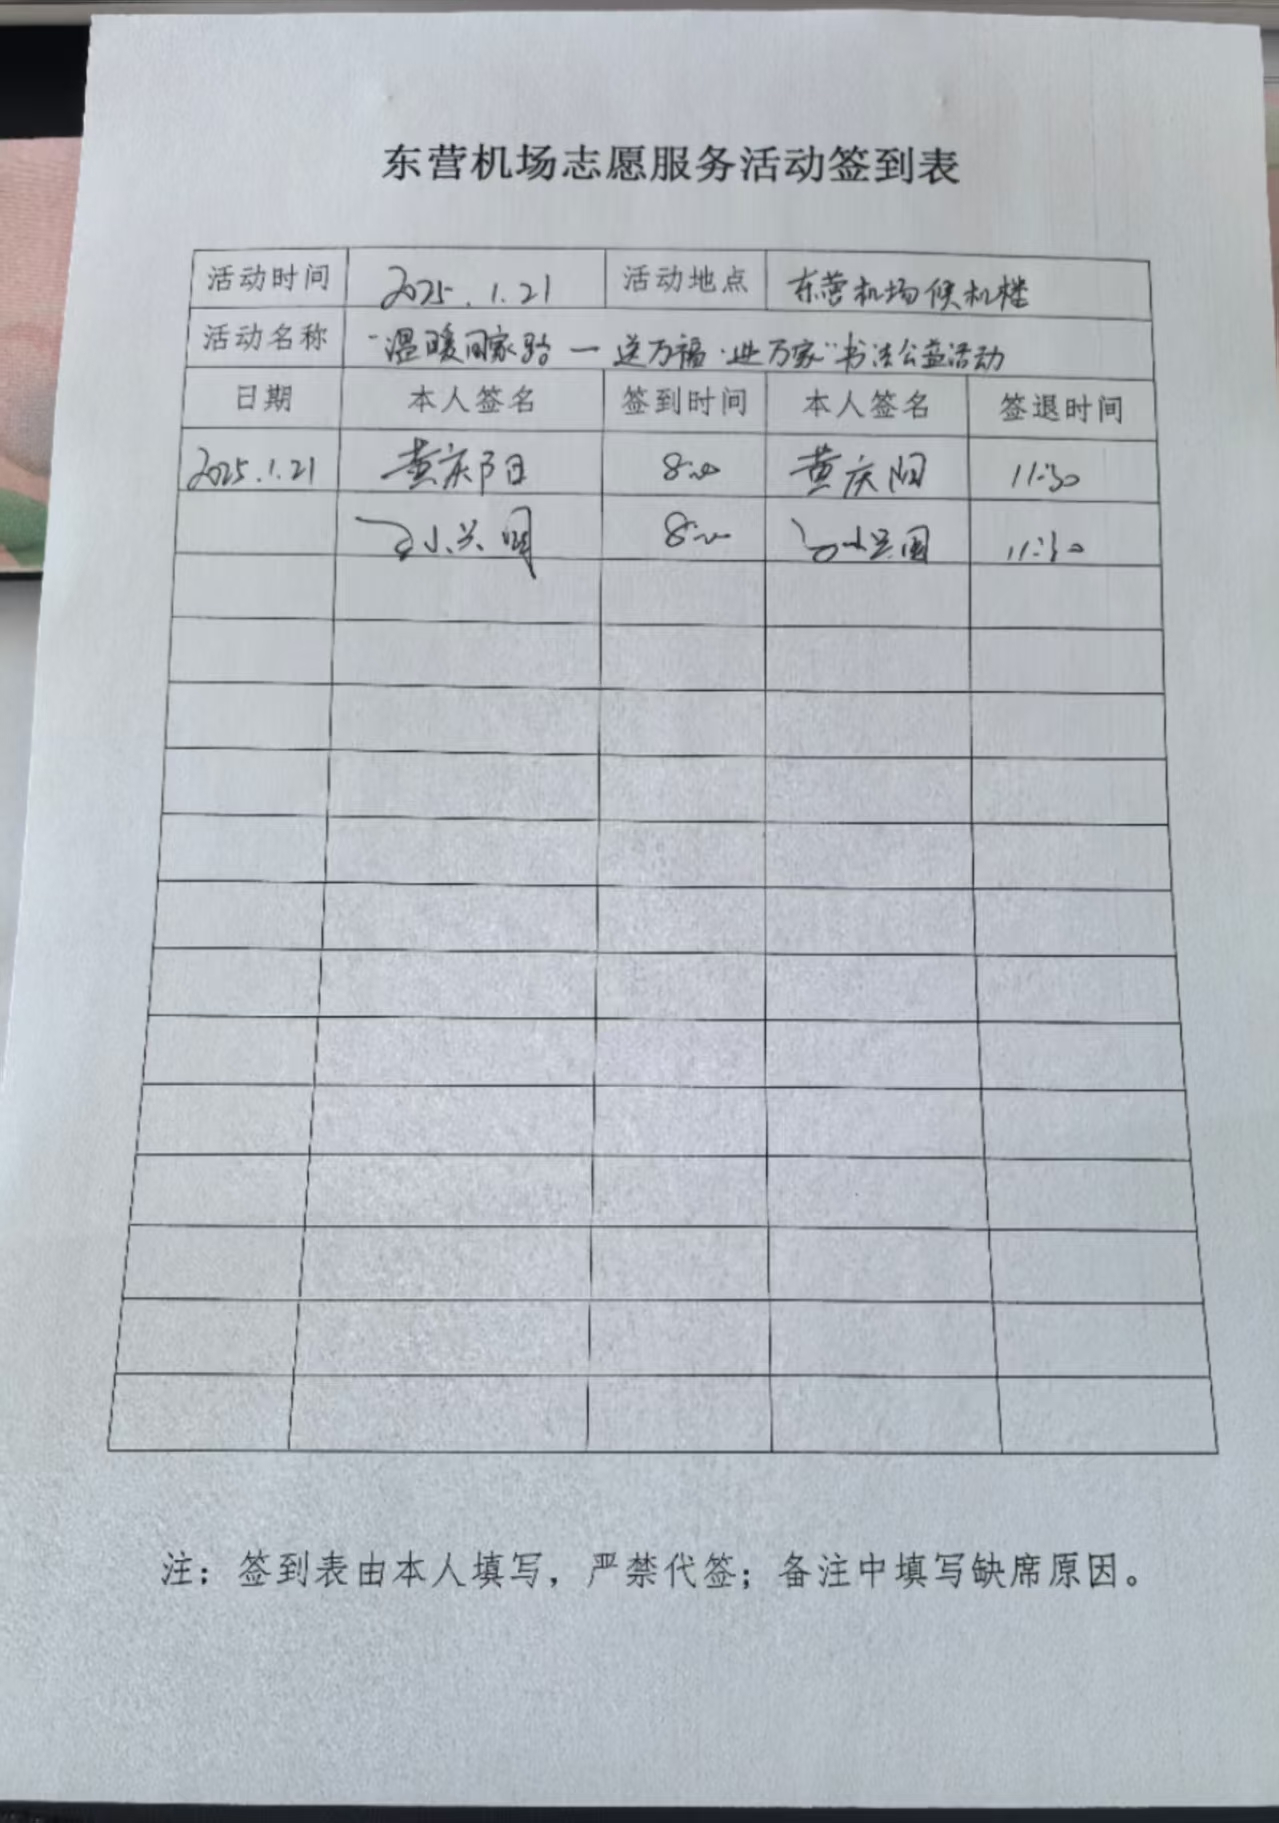 东营机场志愿服务活动签到表
活动时间 2025.1.21 活动地点 东营机场候机楼
活动名称 “温暖回家路一送万福·进万家”书法公益活动
日期 本人签名 签到时间 本人签名 签退时间
2025.1.21 黄庆阳 8:00 黄庆阳 11:30
8:00 11:30
注：签到表由本人填写，严禁代签；备注中填写缺席原因。